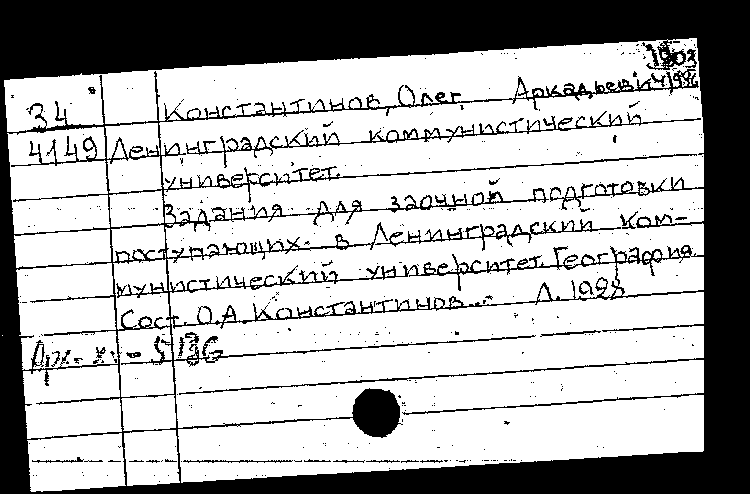 1903
34 Константинов, Олег Аркадьевич 1996
4149 Ленинградский коммунистический
университет.
Задания для заочной подготовки
поступающих в Ленинградский ком-
мунистический университет. География.
Сост. О.А. Константинов... Л. 1928
Арх. хх - 5136